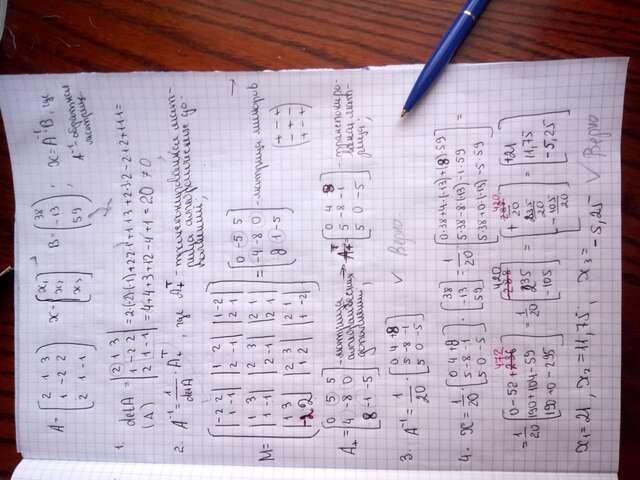 A = (2 1 3
1 -2 2
2 1 -1)
x = [x₁
x₂
x₃]
B = (38
-13
59), x = A⁻¹·B, где
A⁻¹ обратная
матрица
1. detA = |2 1 3
(A) 1 -2 2
2 1 -1| = 2·(-2)·(-1)+2·2·1+1·1·3+2·3·2-2·1·2+1·1·1=
= 4+4+3+12-4+1 = 20 ≠ 0
2. A⁻¹ = 1/detA · A*ᵀ, где A*ᵀ - транспонированная мат-
рица алгебраических до-
полнений;
M = ( |-2 2; 1 -1| |1 2; 2 -1| |1 -2; 2 1|
|1 3; 1 -1| |2 3; 2 -1| |2 1; 2 1|
|1 3; -2 2| |2 3; 1 2| |2 1; 1 -2| ) = [0 -5 5
-4 -8 0
8 1 -5] - матрица миноров
(+ - +
- + -
+ - +)
A* = [0 5 5
4 -8 0
8 -1 -5] - матрица
алгебраических
дополнений, → A*ᵀ = [0 4 8
5 -8 -1
5 0 -5] - транспониро-
ванная мат-
рица;
3. A⁻¹ = 1/20 · [0 4 +8
5 -8 -1
5 0 -5] ✓ Верно
4. x = 1/20 · [0 4 +8
5 -8 -1
5 0 -5] · [38
-13
59] = 1/20 [0·38+4·(-13)+8·59
5·38-8·(-13)-1·59
5·38+0·(-13)-5·59] =
= 1/20 [0-52+472
190+104-59
190-0-295] = 1/20 [420
235
-105] = [420/20
235/20
-105/20] = [+21
11,75
-5,25]
x₁ = 21, x₂ = 11,75, x₃ = -5,25 ✓ Верно